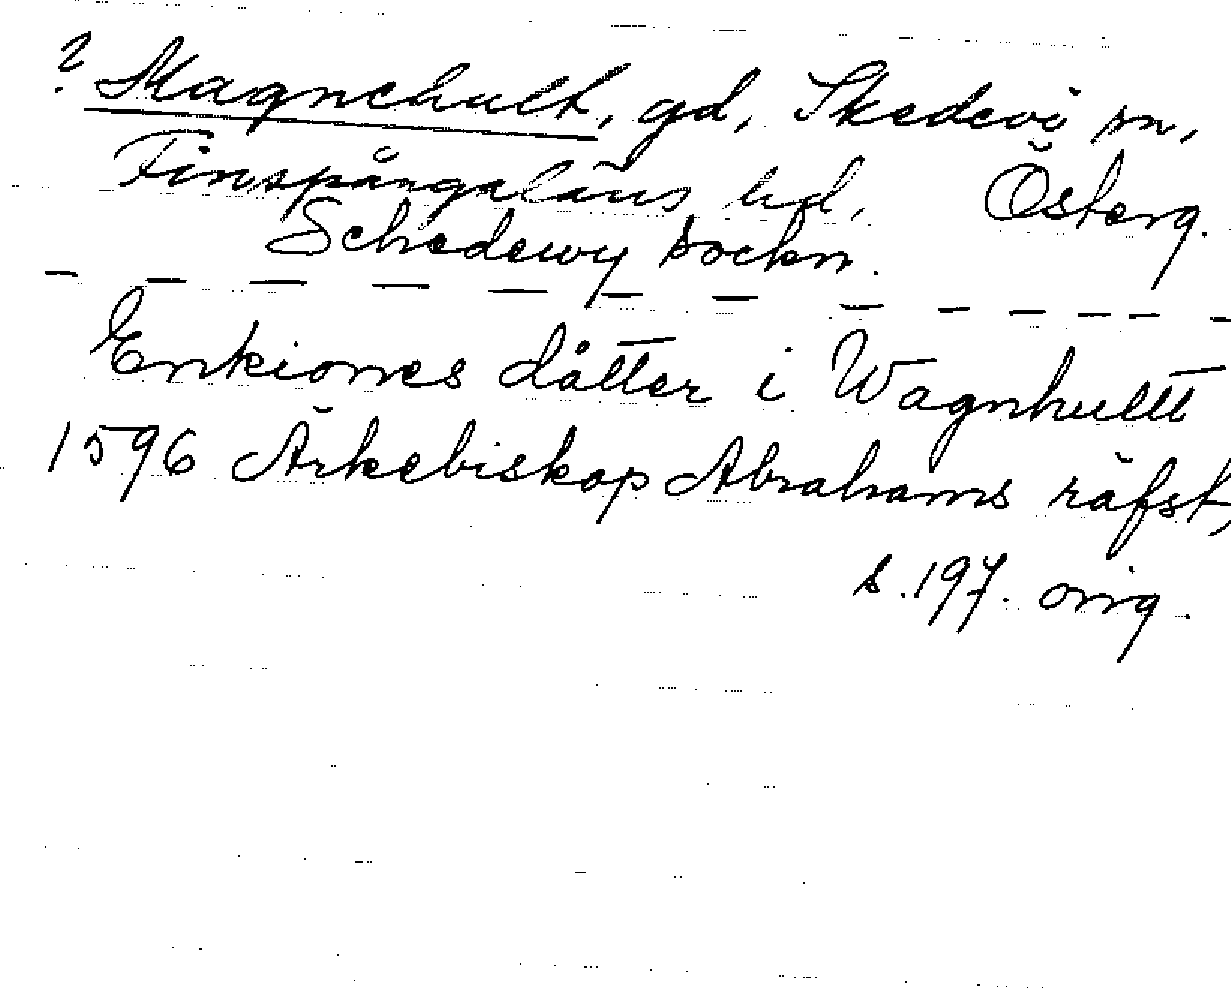 ? Magnehult, gd, Skedevi sn,
Finspångaläns hd, Österg.
Schedewy sockn.
Enkiones dåtter i Wagnhultt
1596 Ärkebiskop Abrahams räfst,
s. 197. orig.